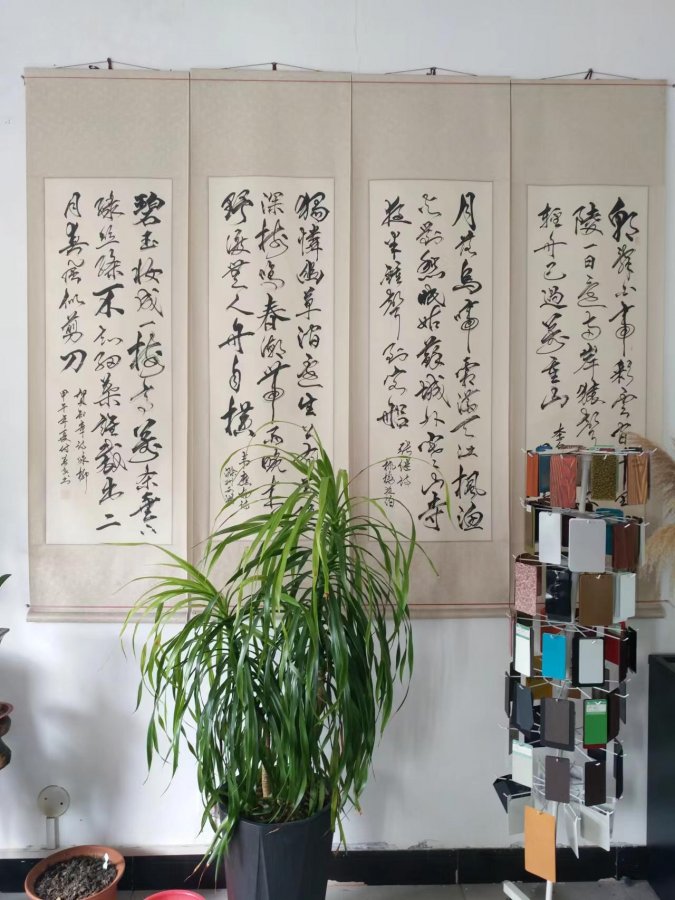 朝辞白帝彩云间
陵一日还两岸猿声
轻舟已过萬重山 李
月落乌啼霜满天江枫渔
火对愁眠姑苏城外寒山寺
夜半鐘声到客船
张继诗
枫桥夜泊
獨憐幽草涧边生
深树鸣春潮带雨晚来
野渡无人舟自横
韦应物诗
滁州西涧
碧玉妆成一树高萬条垂下
绿丝绦不知细叶谁裁出二
月春风似剪刀
贺知章诗咏柳
甲午年夏